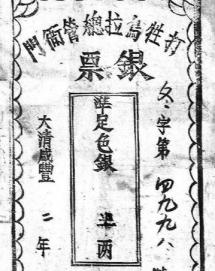 打牲烏拉總管衙門
銀票
冬字第四九九八號
準足色銀 半两
大清咸豐 二年